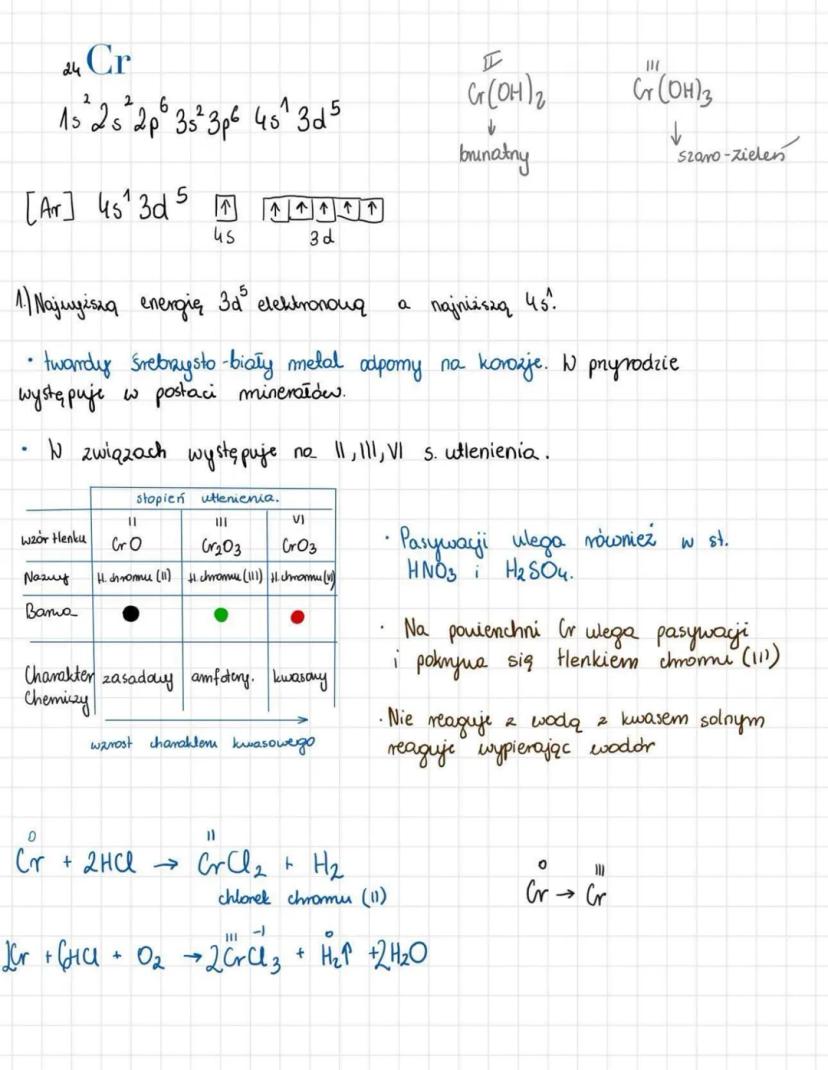 24 Cr
1s² 2s² 2p⁶ 3s² 3p⁶ 4s¹ 3d⁵
II
Cr(OH)₂
↓
brunatny
III
Cr(OH)₃
↓
szaro-zieleń
[Ar] 4s¹ 3d⁵ ↑ ↑ ↑ ↑ ↑ ↑
4s 3d
1.) Najwyższą energię 3d⁵ elektronową a najniższą 4s¹.
• twardy śrebrzysto-biały metal odporny na korozje. W przyrodzie
występuje w postaci minerałów.
• W związach występuje na II, III, VI s. utlenienia.
stopień utlenienia.
II III VI
wzór tlenku CrO Cr₂O₃ CrO₃
Nazwy tl. chromu (II) tl. chromu (III) tl. chromu (VI)
Barwa
Charakter zasadowy amfotery. kwasowy
Chemiczy
wzrost charakteru kwasowego
• Pasywacji ulega również w st.
HNO₃ i H₂SO₄.
• Na powierzchni Cr ulega pasywacji
i pokrywa się tlenkiem chromu (III)
• Nie reaguje z wodą z kwasem solnym
reaguje wypierając wodór
0 II
Cr + 2HCl → CrCl₂ + H₂
chlorek chromu (II)
0 III
Cr → Cr
III -I 0
2Cr + 6HCl + O₂ → 2CrCl₃ + H₂↑ + 2H₂O